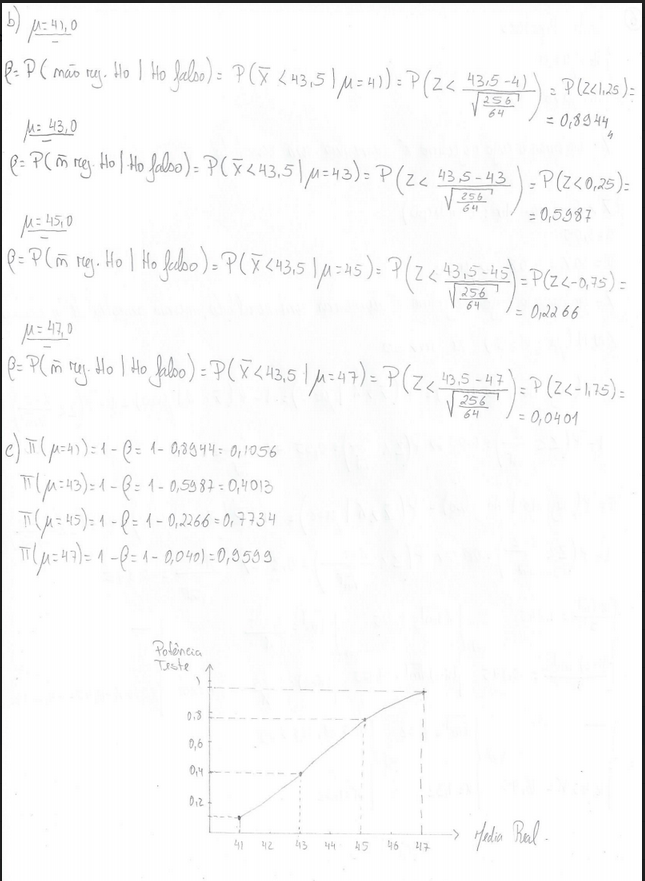 b) μ=41,0
β=P(não rej. Ho | Ho falso) = P(X̄ < 43,5 | μ=41) = P(Z < (43,5-41)/√(256/64)) = P(Z<1,25) =
= 0,8944
μ=43,0
β=P(ñ rej. Ho | Ho falso) = P(X̄<43,5 | μ=43) = P(Z< (43,5-43)/√(256/64)) = P(Z<0,25) =
= 0,5987
μ=45,0
β=P(ñ rej. Ho | Ho falso) = P(X̄<43,5 | μ=45) = P(Z< (43,5-45)/√(256/64)) = P(Z<-0,75) =
= 0,2266
μ=47,0
β=P(ñ rej. Ho | Ho falso) = P(X̄<43,5 | μ=47) = P(Z< (43,5-47)/√(256/64)) = P(Z<-1,75) =
= 0,0401
c) π(μ=41) = 1-β = 1-0,8944 = 0,1056
π(μ=43) = 1-β = 1-0,5987 = 0,4013
π(μ=45) = 1-β = 1-0,2266 = 0,7734
π(μ=47) = 1-β = 1-0,0401 = 0,9599
Potência
Teste
1
0.8
0,6
0,4
0,2
41 42 43 44 45 46 47
Média Real.